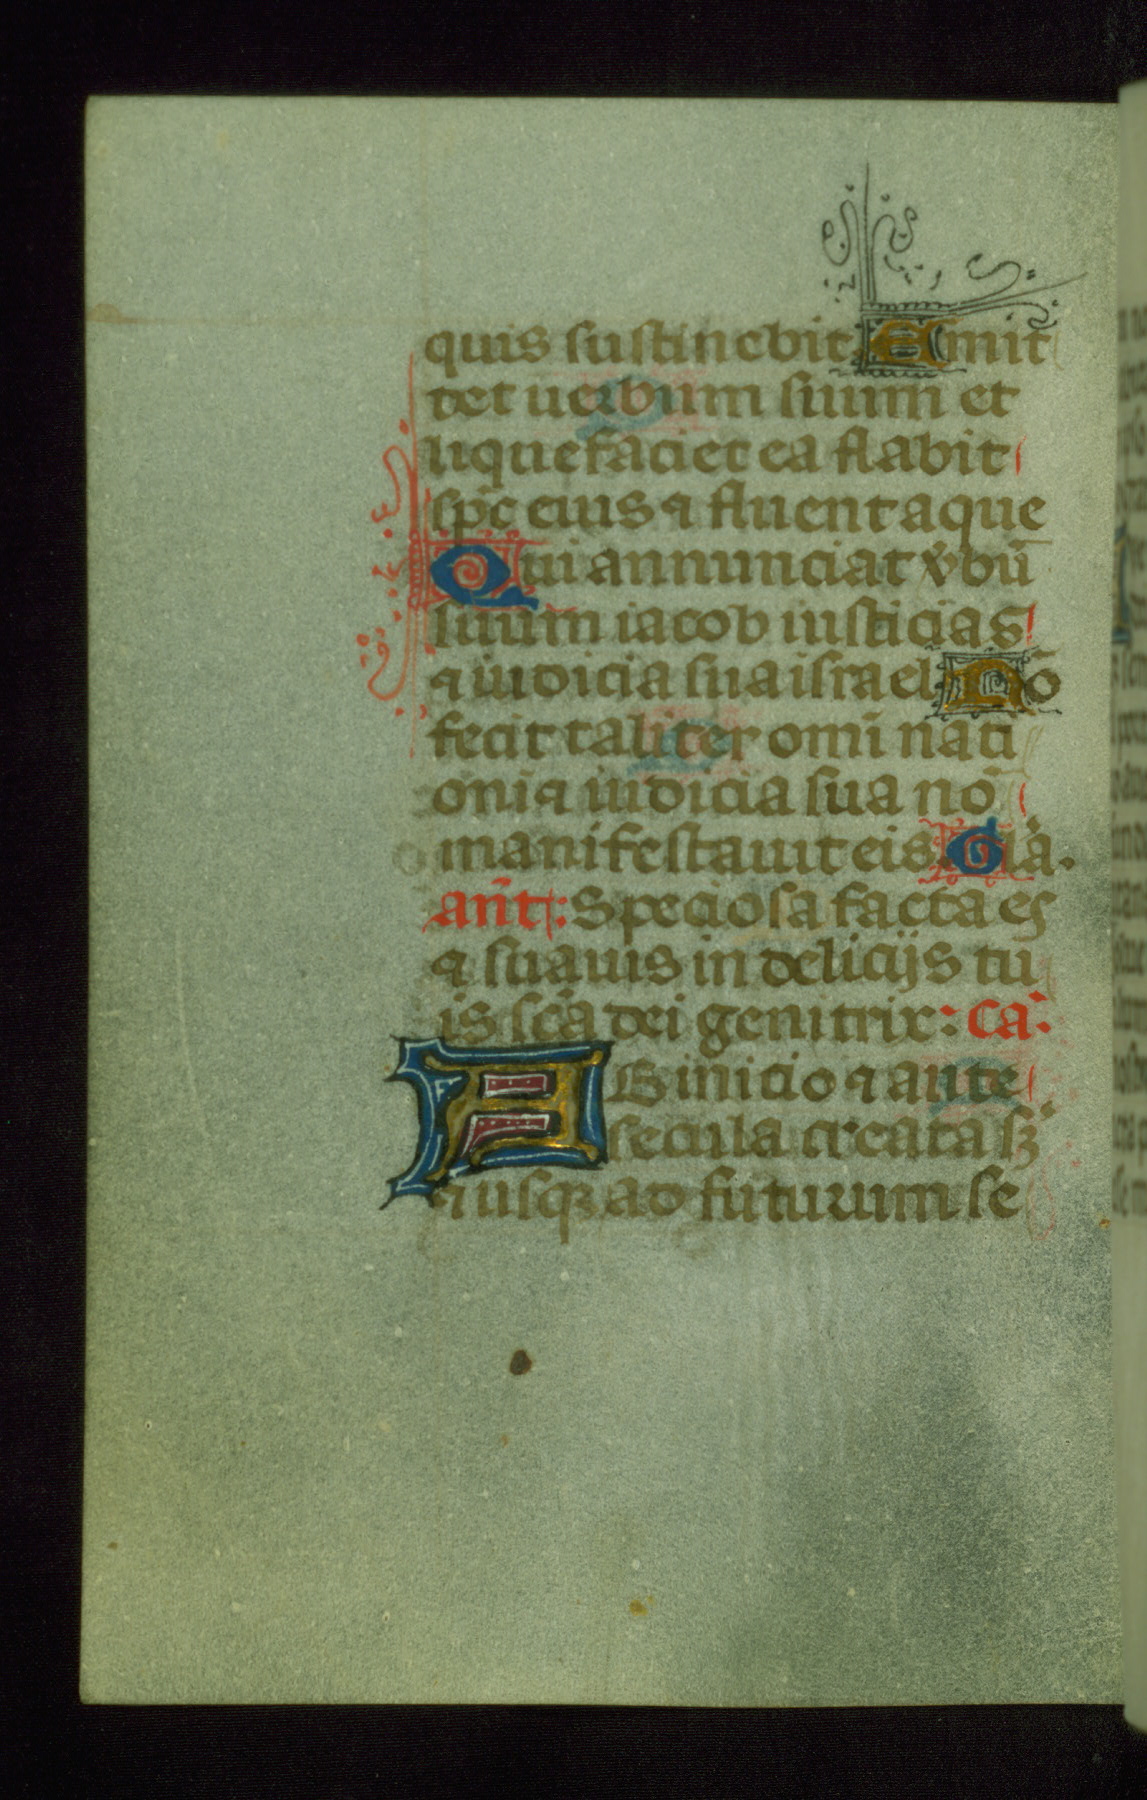 quis sustinebit Emit
tet uerbum suum et
liquefaciet ea flabit
sp̄c eius ⁊ fluent aque
Qui annunciat v̓bū
suum iacob iusticias
⁊ iudicia sua israel Nō
fecit taliter om̄i nati
oni ⁊ iudicia sua nō
manifestauit eis Glā.
an̄t: Speciosa facta es
⁊ suauis in delicijs tu
is sc̄a dei genitrix: ca:
AB inicio ⁊ ante
secula creata sʒ
⁊ usqꝫ ad futurum se